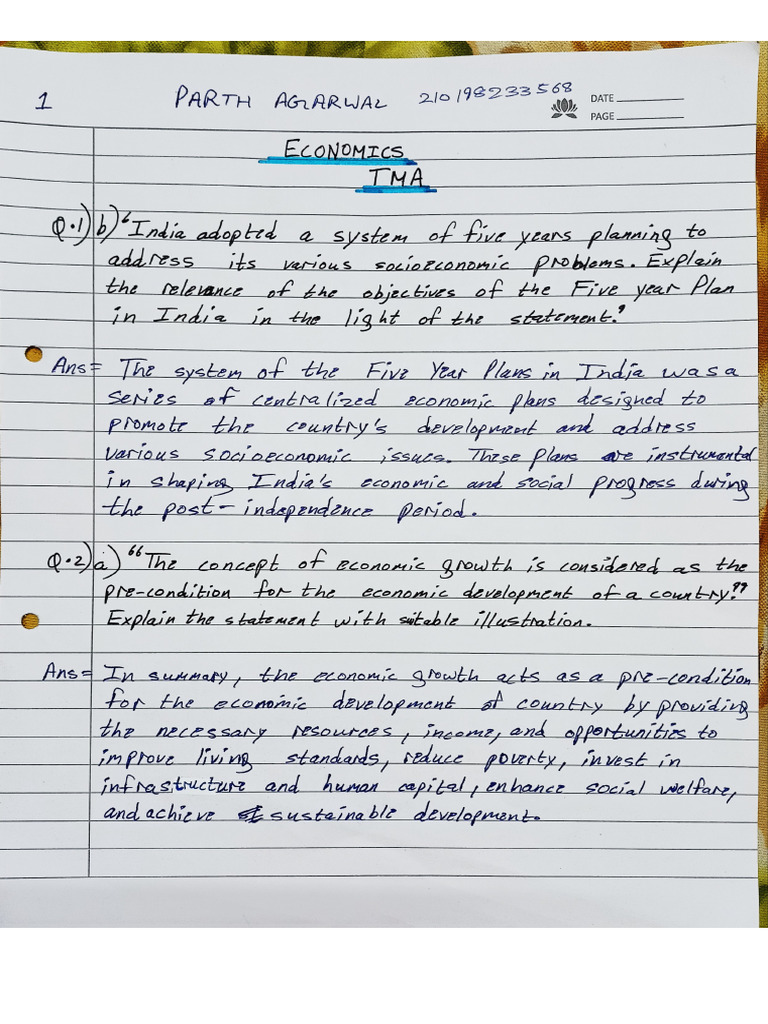 1 PARTH AGARWAL 210198233568
DATE
PAGE
ECONOMICS
TMA
Q.1) b) "India adopted a system of five years planning to
address its various socioeconomic problems. Explain
the relevance of the objectives of the Five year Plan
in India in the light of the statement."
Ans= The system of the Five Year Plans in India was a
series of centralized economic plans designed to
promote the country's development and address
various socioeconomic issues. These plans are instrumental
in shaping India's economic and social progress during
the post-independence period.
Q.2) a) "The concept of economic growth is considered as the
pre-condition for the economic development of a country."
Explain the statement with suitable illustration.
Ans= In summary, the economic growth acts as a pre-condition
for the economic development of country by providing
the necessary resources, income, and opportunities to
improve living standards, reduce poverty, invest in
infrastructure and human capital, enhance social welfare,
and achieve sustainable development.